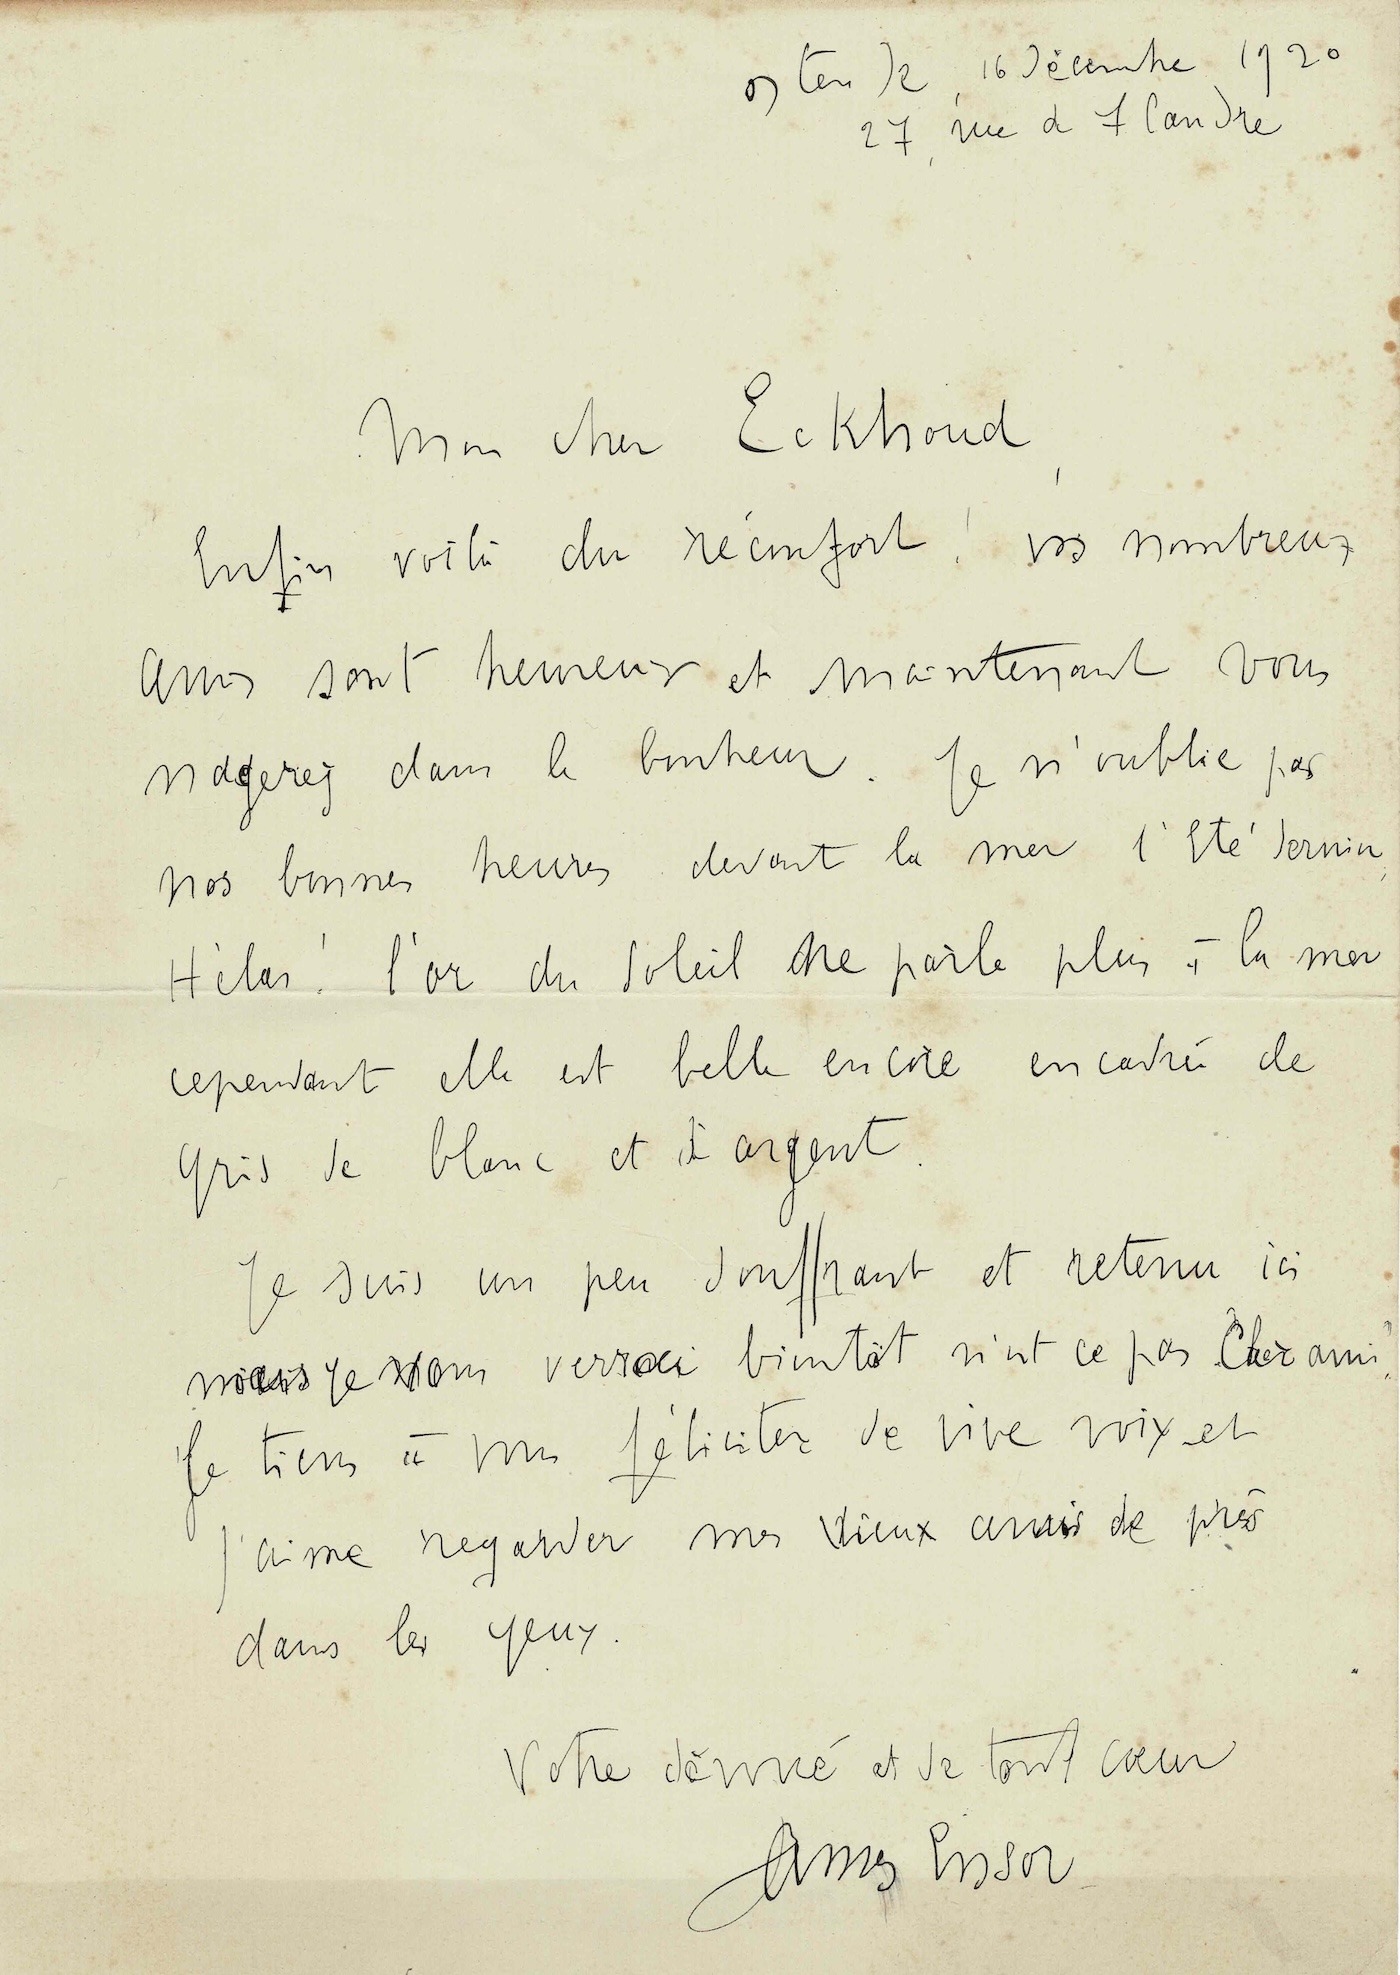 Ostende, 16 Décembre 1920
27, rue de Flandre
Mon cher Eckhoud,
Enfin voilà du réconfort! vos nombreux
amis sont heureux et maintenant vous
nagerez dans le bonheur. Je n'oublie pas
nos bonnes heures devant la mer l'Eté dernier,
Hélas! l'or du soleil ne parle plus à la mer
cependant elle est belle encore encadrée de
gris de blanc et d'argent.
Je suis un peu souffrant et retenu ici
mais je vous verrai bientôt n'est ce pas Cher ami?
Je tiens à vous féliciter de vive voix et
j'aime regarder mes vieux amis de près
dans les yeux.
Votre dévoué et de tout coeur
James Ensor